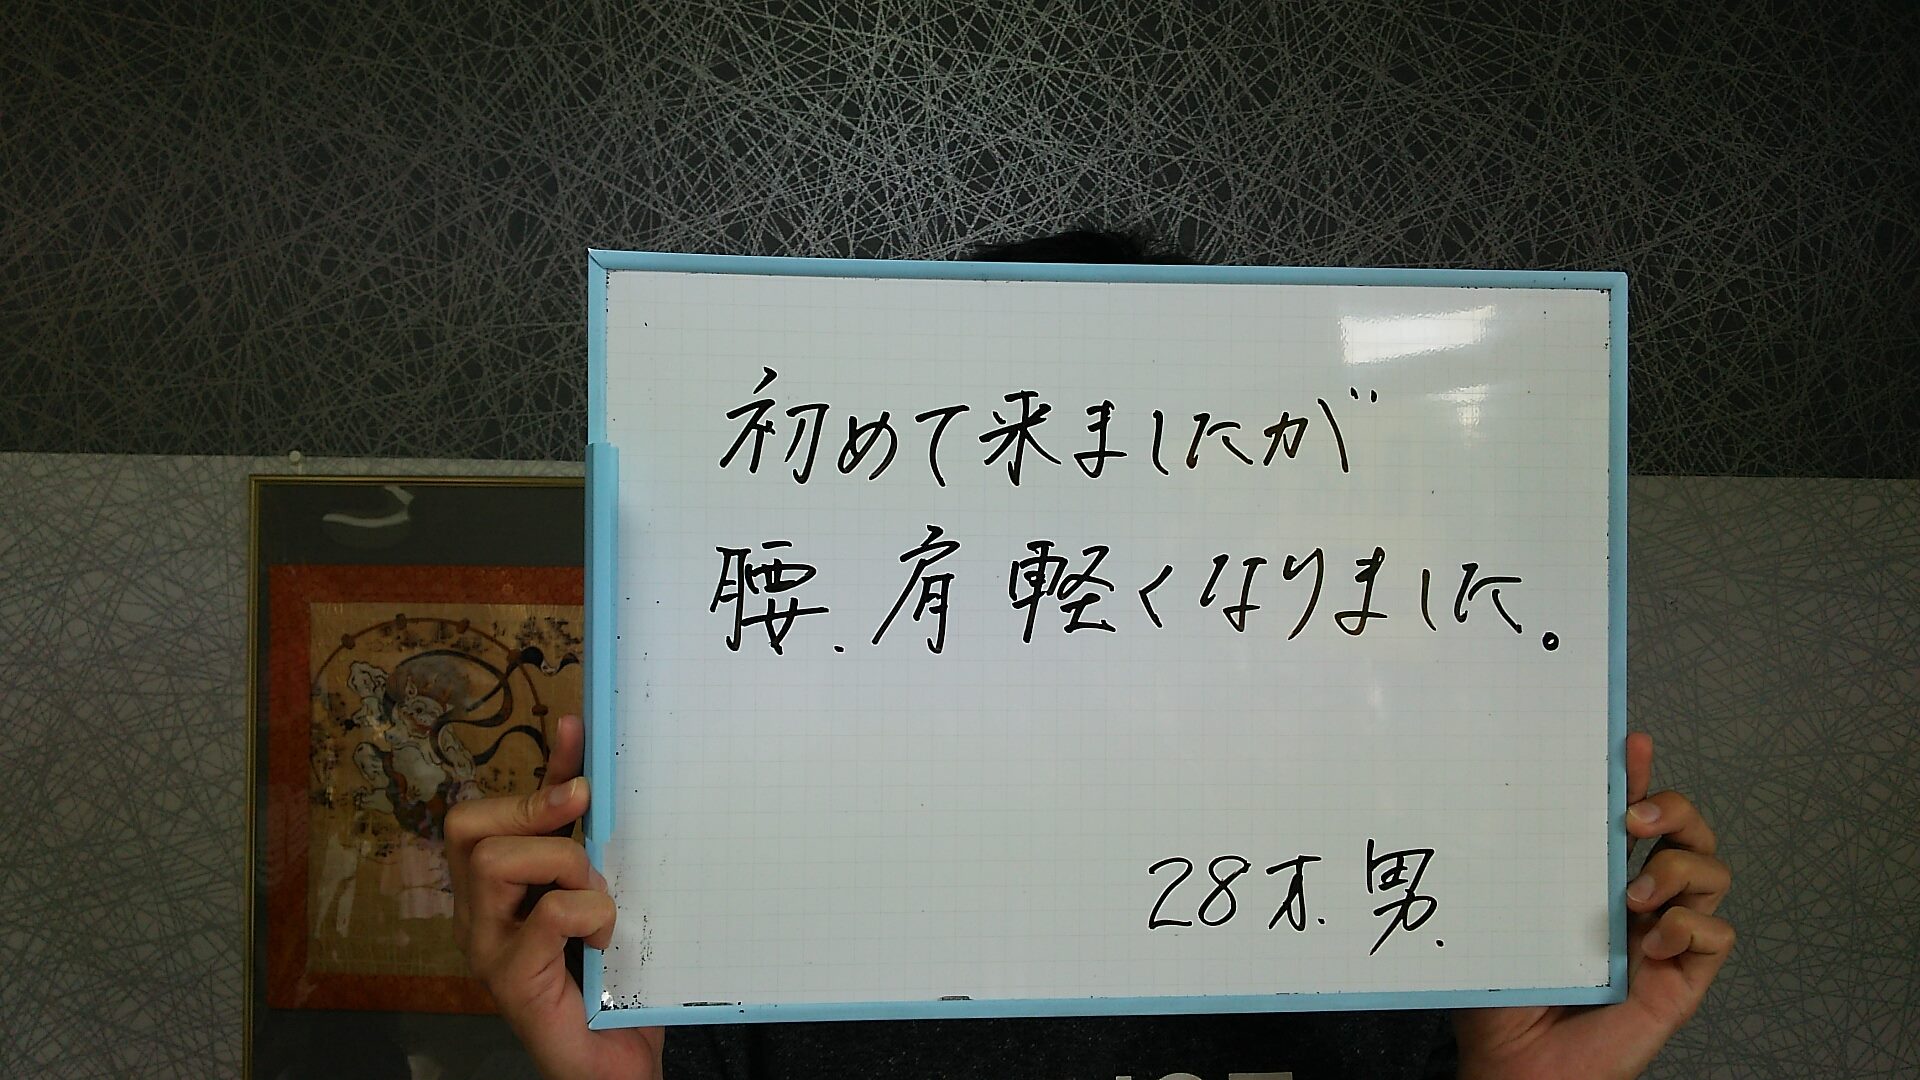 初めて来ましたが
腰.肩 軽くなりました。
28才.男.